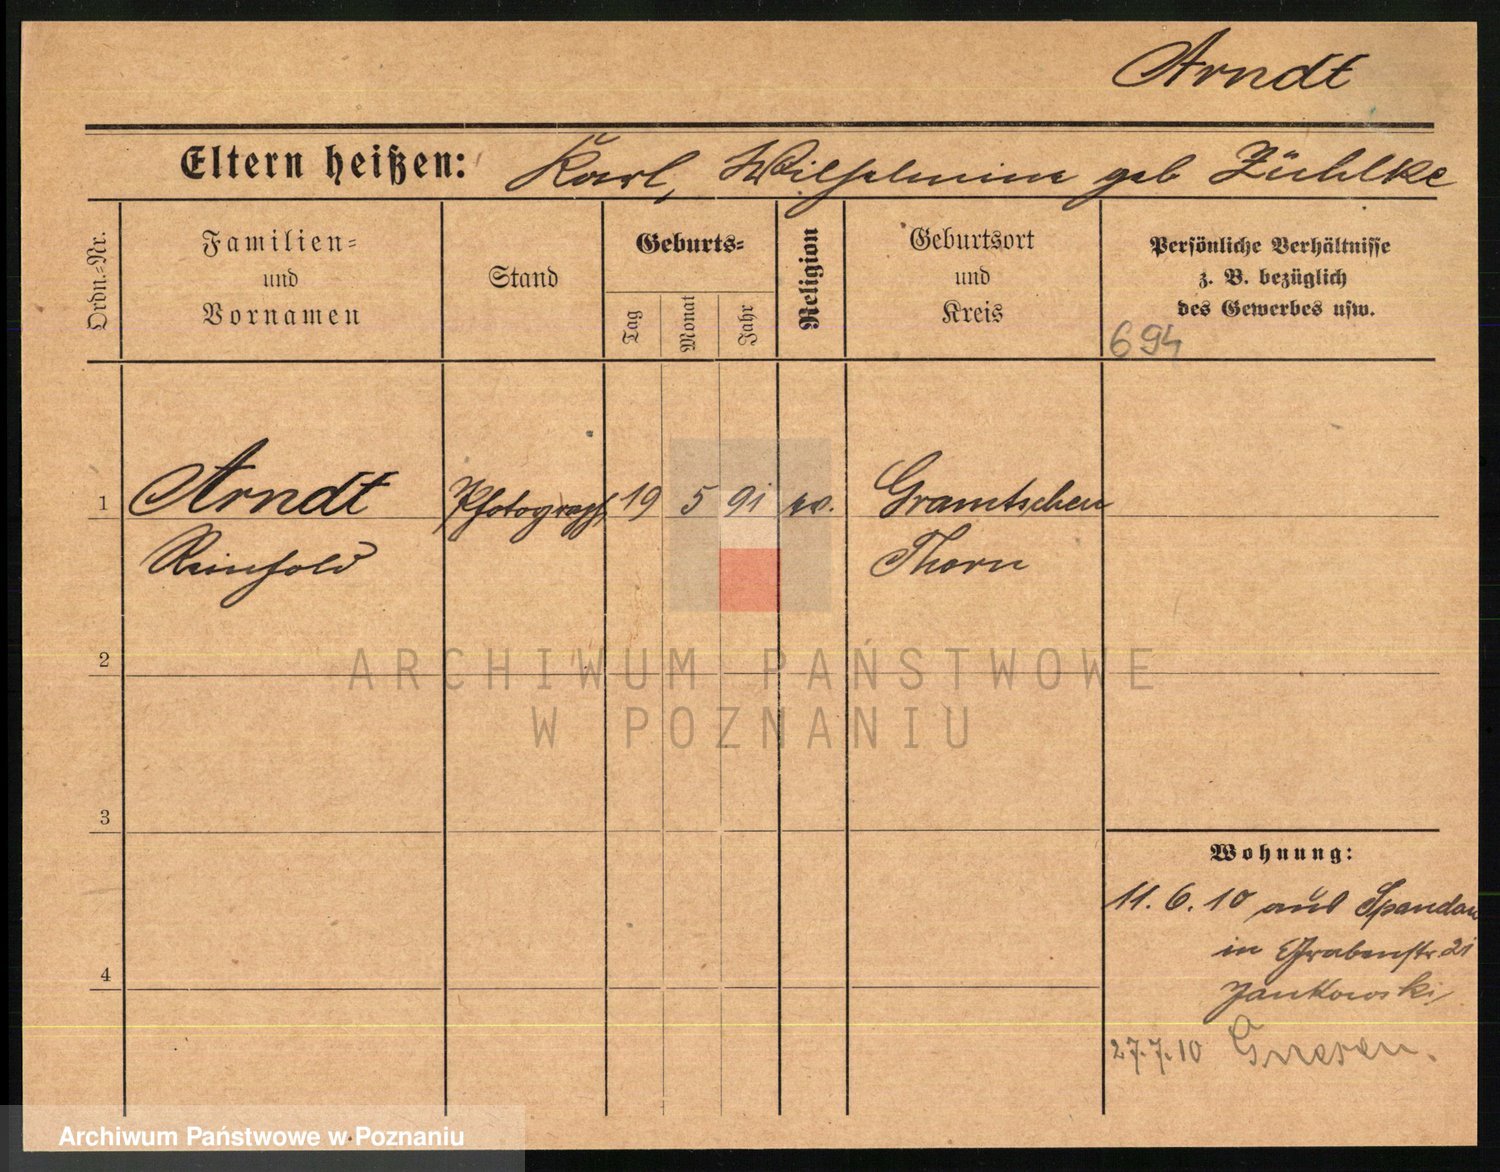 Arndt
Eltern heißen: Karl, Wilhelmine geb Zühlke
Ordn.-Nr.
Familien-
und
Vornamen
Stand
Geburts-
Tag
Monat
Jahr
Religion
Geburtsort
und
Kreis
Persönliche Verhältnisse
z. B. bezüglich
des Gewerbes usw.
694
1 Arndt Photograph 19 5 91 ev. Gramtschen
Reinhold Thorn
2
ARCHIWUM PAŃSTWOWE
W POZNANIU
3
Wohnung:
11. 6. 10 aus Spandau
in Grabenstr. 21
Jankowski
4
27.7.10 Gnesen.
Archiwum Państwowe w Poznaniu